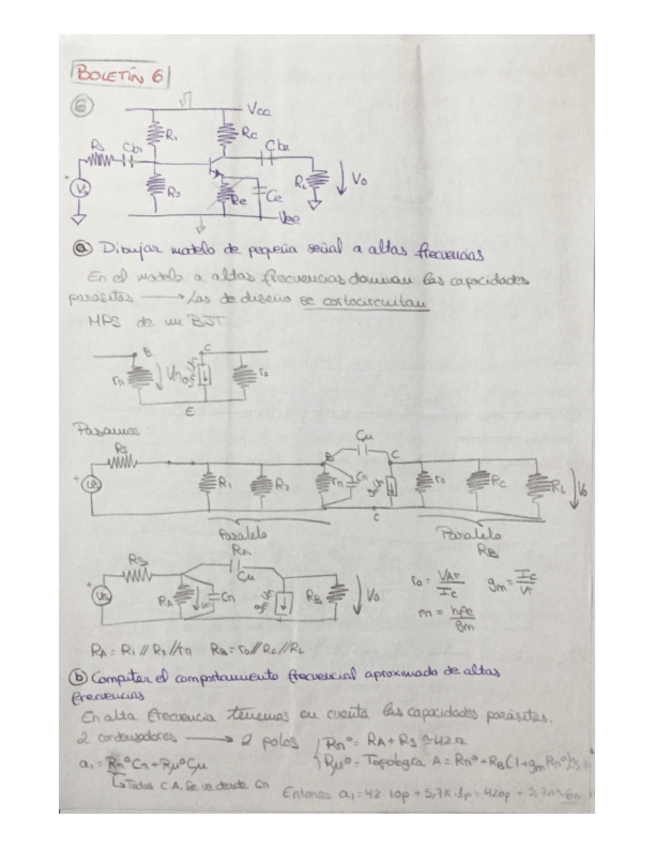 BOLETÍN 6
6
Vcc
Rs Cb1 R1 Rc Cb2
Vs R2 Re Ce RL Vo
Vee
a Dibujar modelo de pequeña señal a altas frecuencias
En el modelo a altas frecuencias dominan las capacidades
parásitas → Las de diseño se cortocircuitan
MPS de un BJT
B C
rπ ro
E
Rs B Cu C
R1 R2 rπ Cπ ro Rc RL Vo
C
Paralelo Paralelo
RA RB
Rs Cu
Vs RA Cπ RB Vo
ro = VAF/Ic gm = Ic/VT
rπ = hfe/gm
RA = R1//R2//rπ RB = ro//Rc//RL
b Computar el comportamiento frecuencial aproximado de altas
frecuencias
En alta frecuencia tenemos en cuenta las capacidades parásitas.
2 condensadores → 2 polos Rπ° = RA + Rs ≈ 42Ω
a1 = Rπ°Cπ + Rμ°Cμ Rμ° = Topología A = Rπ° + RB(1+gmRπ°)
Todos C.A. Se ve desde Cπ
Entonces a1 = 42·10p + 5,7K·1p = 420p +